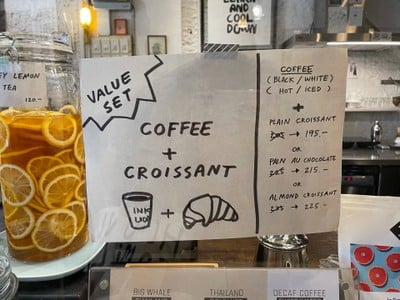 AND
COOL
DOWN
EY LEMON
TEA
120.-
VALUE
SET
COFFEE
+
CROISSANT
INK
+
COFFEE
(BLACK / WHITE)
(HOT / ICED)
+
PLAIN CROISSANT
→ 195.-
OR
PAIN AU CHOCOLATE
→ 215.-
OR
ALMOND CROISSANT
→ 225.-
BIG WHALE
THAILAND
DECAF COFFEE